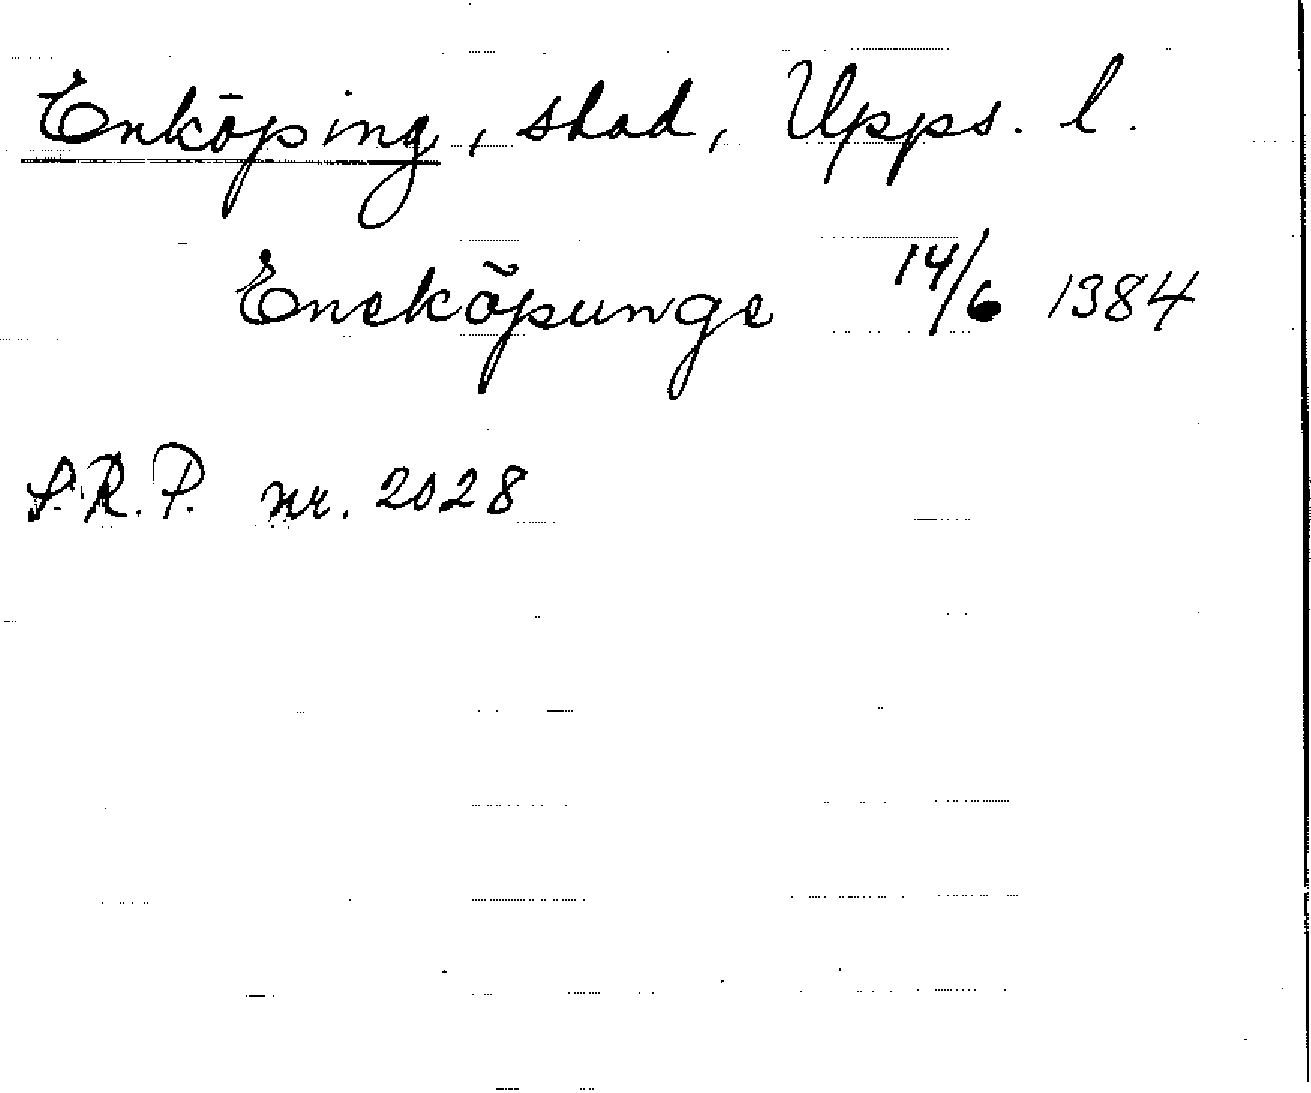 Enköping, stad, Upps. l.
Eneköpunge 14/6 1384
S.R.P. nr. 2028